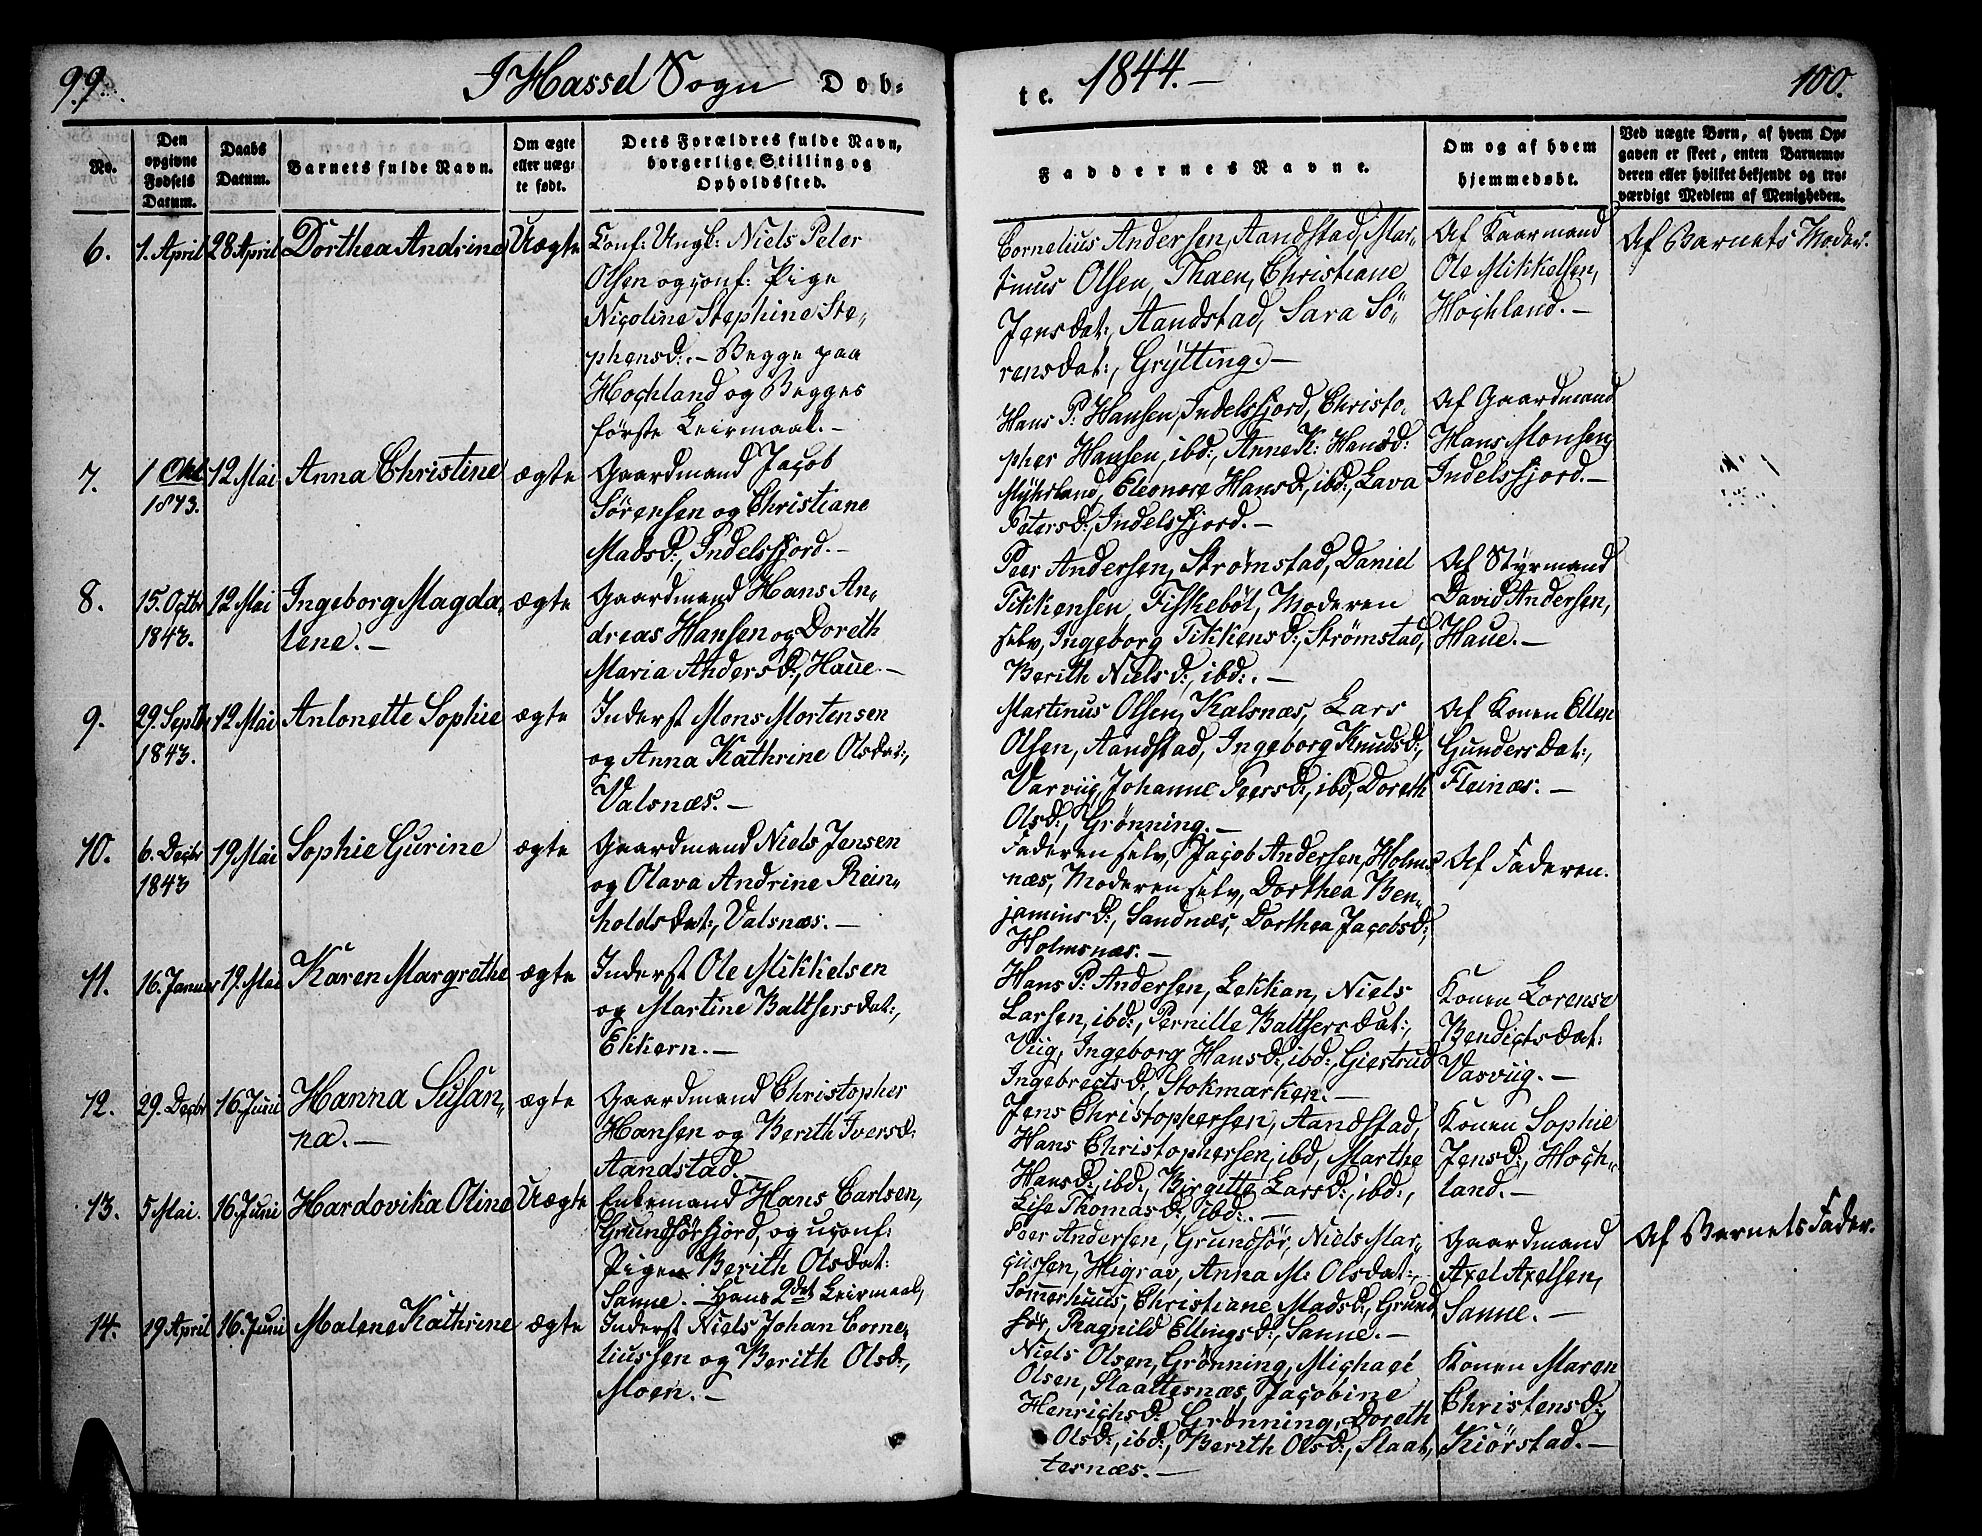 99.
I Hassel Sogn Døb-
te. 1844.-
100.
No.
Den opgivne Fødsels Datum.
Daabs Datum.
Barnets fulde Navn.
Om ægte eller uæg-
te født.
Dets Forældres fulde Navn,
borgerlige Stilling og
Opholdssted.
Faddernes Navne.
Om og af hvem
hjemmedøbt.
Ved uægte Børn, af hvem Op-
gaven er skeet, enten Barnemo-
deren eller hvilket bekjendt og tro-
værdigt Medlem af Menigheden.
6. 1. April 28 April Dorthea Andrine Uægte
Conf: Ungk: Niels Peter
Olsen og conf: Pige
Nicoline Stephine Ste-
phensd:.- Begge paa
Hochland og Begges
første Leiermaal.-
Cornelius Andersen, Aandstad, Mar-
tinus Olsen, Thaen, Christiane
Jensdat:, Aandstad, Sara Sö-
rensdat:, Grÿtting.-
Af Kaarmand
Ole Mikkelsen,
Hochland.-
Af Barnets Moder.
7. 1 Okt. 1843. 12 Mai Anna Christine ægte
Gaardmand Jacob
Sörensen og Christiane
Madsd:, Indelsfjord.-
Hans P: Hansen, Indelsfjord, Christo-
pher Hansen, ibd:, Anne K: Hansd:
Mÿhrland, Eleonore Hansd:, ibd:, Lava
Petersd:, Indelsfjord.-
Af Gaardmand
Hans Monsen,
Indelsfjord.-
8. 15. Octbr 1843. 12 Mai Ingeborg Magda-
lene.- ægte
Gaardmand Hans An-
dreas Hansen og Doreth
Maria Andersd:, Haue.-
Peer Andersen, Strømstad, Daniel
Tikkensen Fiskebøl, Moderen
selv, Ingeborg Tikkensd:, Strømstad,
Berith Nielsd:, ibd:.-
Af Styrmand
David Andersen,
Haue.-
9. 29. Septbr 1843. 12 Mai Antonette Sophie ægte
Inderst Mons Mortensen
og Anna Kathrine Olsdat:,
Valsnæs.-
Martinus Olsen, Kalsnæs, Lars
Olsen, Aandstad, Ingeborg Knudsd:,
Varviig, Johanne Peersd:, ibd, Doreth
Olsd:, Grønning.-
Af Konen Ellen
Gundersdat:,
Fleinæs.-
10. 6. Decbr 1843 19 Mai Sophie Gurine ægte
Gaardmand Niels Jensen
og Olava Andrine Rein-
holdsdat:, Valsnæs.-
Faderen selv, Jacob Andersen, Holms-
næs, Moderen selv, Dorthea Ben-
jaminsd:, Sandnæs, Dorthea Jacobsd:,
Holmsnæs.-
Af Faderen.
11. 16. Januar 19. Mai Karen Margrethe ægte
Inderst Ole Mikkelsen
og Martine Balthersdat:,
Ekkern.-
Hans P: Andersen, Lekkan, Niels
Larsen, ibd:, Pernille Balthersdat:,
Viig, Ingeborg Hansd:, ibd:, Giertrud
Ingebrectsd:, Stokmarken.-
Konen Lorense
Bendictsdat:
Varviig.-
12. 29. Decbr 16. Juni Hanna Susan-
na.- ægte
Gaardmand Christopher
Hansen og Berith Iversd:
Aandstad.
Jens Christophersen, Aandstad,
Hans Christophersen, ibd, Marthe
Hansd:, ibd:, Birgitte Larsd:, ibd:,
Lise Thomasd:, ibd:.-
Konen Sophie
Jensd:, Hoch-
land.-
13. 5 Mai. 16. Juni Hardovika Oline Uægte
Enkemand Hans Carlsen,
Grundförfjord, og uconf:
Pigen Berith Olsdat:
Sanne.- Hans 2det Leiermaal,
Peer Andersen, Grundför, Niels Mar-
cussen, Higrav, Anna M: Olsdat:,
Somerhuus, Christiane Madsd:, Grund
för, Ragnild Ellingsd:, Sanne.-
Gaardmand
Axel Axelsen,
Sanne.-
Af Barnets Fader.
14. 19 April 16. Juni Malene Kathrine ægte
Inderst Niels Johan Corne-
liussen og Berith Olsd:,
Moen.-
Niels Olsen, Grønning, Michael
Olsen, Slaattesnæs, Jacobine
Henrichsd:, Grønning, Doreth
Olsd:, ibd:, Berith Olsd:, Slaat-
tesnæs.-
Konen Maren
Christensd:,
Kiörstad.-